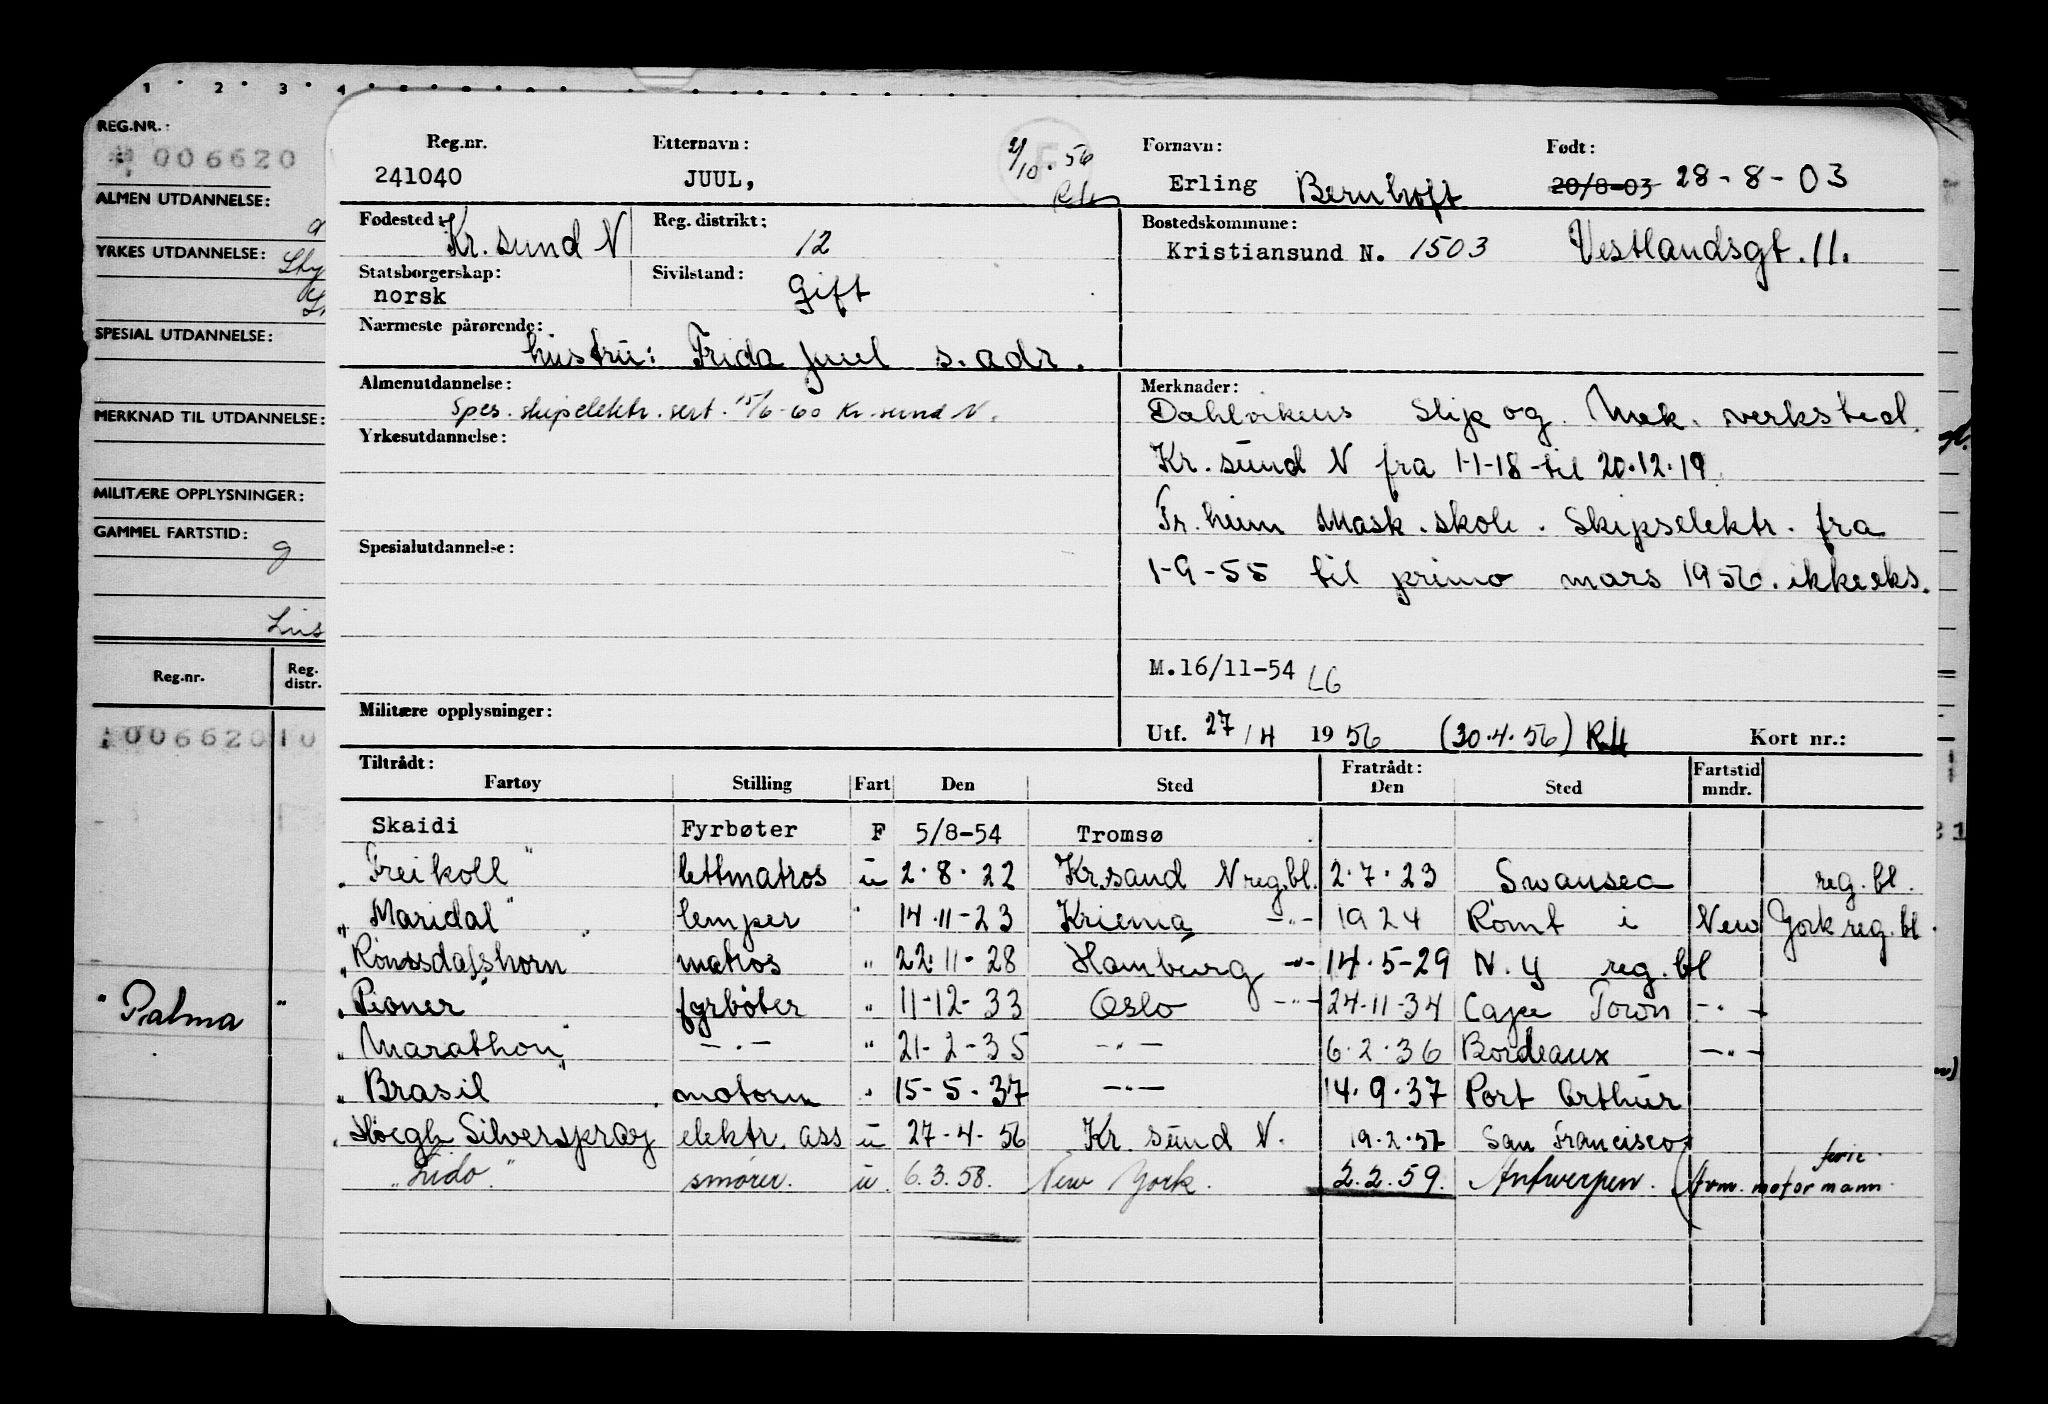 1 2 3 4
REG.NR.:
006620
ALMEN UTDANNELSE:
YRKES UTDANNELSE:
SPESIAL UTDANNELSE:
MERKNAD TIL UTDANNELSE:
MILITÆRE OPPLYSNINGER:
GAMMEL FARTSTID:
Reg.nr. Reg. distr.
00662010
"Palma "
Reg.nr. Etternavn: 2/10.56 Fornavn: Født:
241040 JUUL, Erling Bernhoft 20/8-03 28-8-03
Fødested: Kr.sund N Reg. distrikt: 12 Bostedskommune: Kristiansund N. 1503 Vestlandsgt.11.
Statsborgerskap: norsk Sivilstand: Gift
Nærmeste pårørende: hustru: Frida Juul s.adr.
Almenutdannelse: Spes. skipselektr. sert. 15/6-60 Kr.sund N.
Yrkesutdannelse:
Spesialutdannelse:
Militære opplysninger:
Merknader:
Dahlvikens Slip og Mek. verksted.
Kr.sund N fra 1-1-18 til 20.12.19
Tr.heim Mask.skole. Skipselektr. fra
1-9-55 til primo mars 1956. ikke eks.
M.16/11-54 LG
Utf. 27/4 1956 (30.4.56) RH Kort nr.:
Tiltrådt: Fratrådt:
Fartøy Stilling Fart Den Sted Den Sted Fartstid mndr.
Skaidi Fyrbøter F 5/8-54 Tromsø
"Freikoll" lettmatros u 2.8.22 Kr.sand N reg.bl. 2.7.23 Swansea reg.bl.
"Maridal" lemper " 14.11-23 -"- 1924 Rømt i New York reg.bl.
"Romsdalshorn" matros " 22.11-28 Hamburg -"- 14.5-29 N.Y reg.bl
"Pioner" fyrbøter " 11-12-33 Oslo -"- 24-11-34 Cape Town -"-
"Marathon" -"- " 21-2-35 -"- 6.2.36 Bordeaux -"-
"Brasil motorm " 15-5.37 -"- 14.9.37 Port Arthur
"Høegh Silverspray elektr. ass u 27-4-56 Kr.sund N. 19.2.57 San Francisco
"Lido" smører. u 6.3.58. New York. 2.2.59. Antwerpen. ferie. (Avm. motormann.